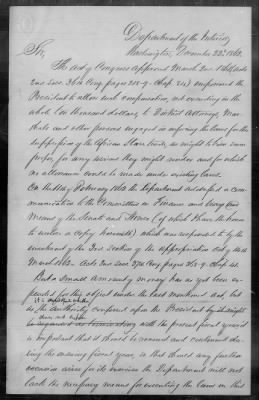 Department of the Interior,
Washington, December 22d 1862.
Sir,
The Act of Congress approved March 2nd 1861 (Acts
2nd Sess. 36th Cong. pages 218-9. Chap. 84) empowered the
President to allow such compensation, not exceeding in the
whole Ten thousand dollars, to District Attorneys, Mar-
shals and other persons engaged in enforcing the laws for the
suppression of the African Slave Trade, as might to him seem
proper, for any services they might render and for which
no allowance could be made under existing laws.
On the day February the Department addressed a com-
munication to the Committees on Finance and Ways and
Means of the Senate and House (of which I have the honor
to enclose a copy herewith) which was responded to by the
enactment of the 3rd Section of the appropriation act of the
March 1862. Acts 2nd Sess. 37th Cong. pages
But a small amount of money has as yet been ex-
pended for this object under the last mentioned act, but
it is
as the authority conferred upon the President
does not
with the present fiscal year it
is important that it should be renewed and continued du-
ring the ensuing fiscal year, so that should any further
occasion arise for its exercise the Department will not
lack the necessary means for executing the laws in this